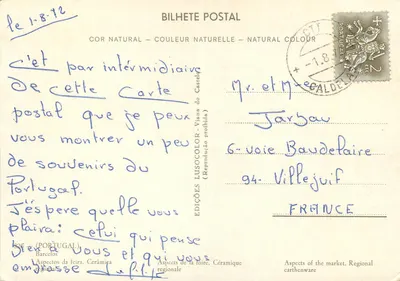 BILHETE POSTAL
COR NATURAL - COULEUR NATURELLE - NATURAL COLOUR
le 1-8-72
c'est par intérmidiaire
de cette Carte
postal que je peux
vous montrer un peu
de souvenirs du
Portugal.
J'éspere quelle vous
plaira: Celui qui pense
bien a Vous et qui vous
embrasse
(PORTUGAL)
Barcelos
Aspectos da feira. Cerâmica
Aspects de la foire. Céramique
regionale
Aspects of the market. Regional
earthenware
EDIÇÕES LUSOCOLOR - Viana do Castelo
(Reprodução proibida)
CTT
-1.8
CALDEL
Mr. et Mme
Jarzau
6- voie Baudelaire
94- Villejuif
FRANCE